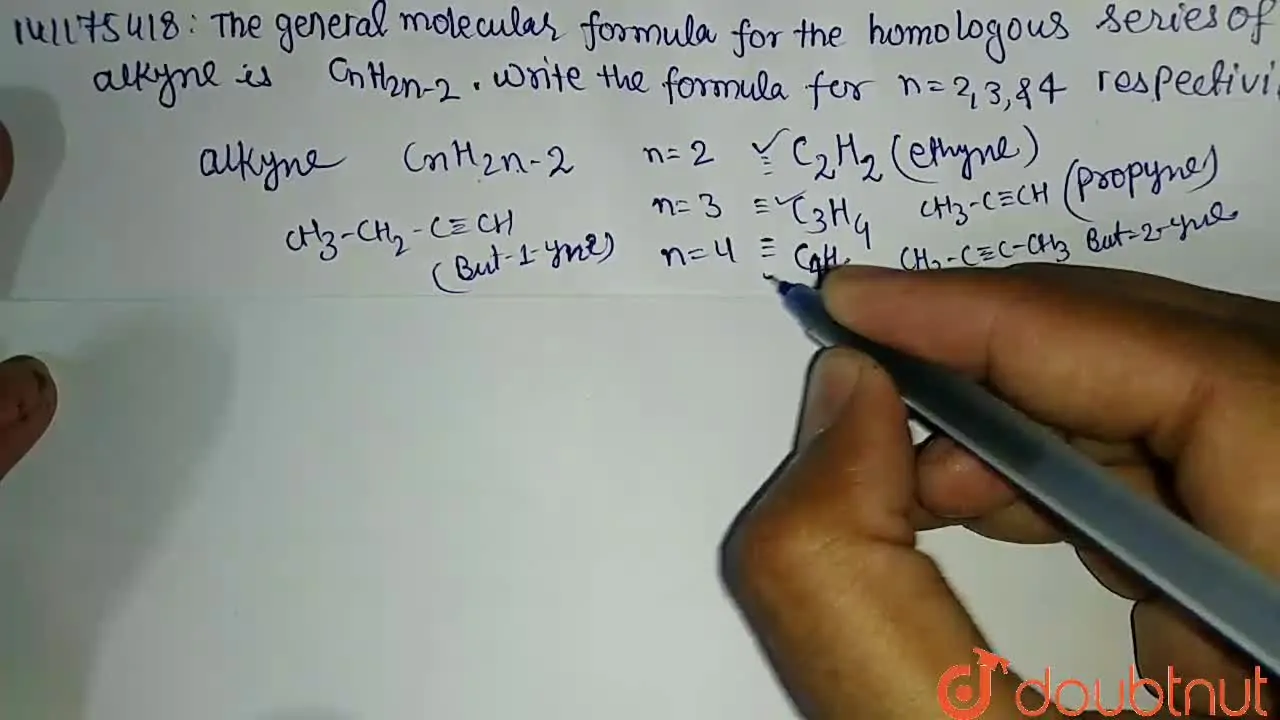 141175418: The general molecular formula for the homologous series of
alkyne is CnH2n-2. write the formula for n=2,3,&4 respectivi
alkyne CnH2n-2 n=2 ≡ C2H2 (ethyne)
n=3 ≡ C3H4 CH3-C≡CH (propyne)
CH3-CH2-C≡CH n=4 ≡ C4H CH3-C≡C-CH3 But-2-yne
(But-1-yne)
doubtnut